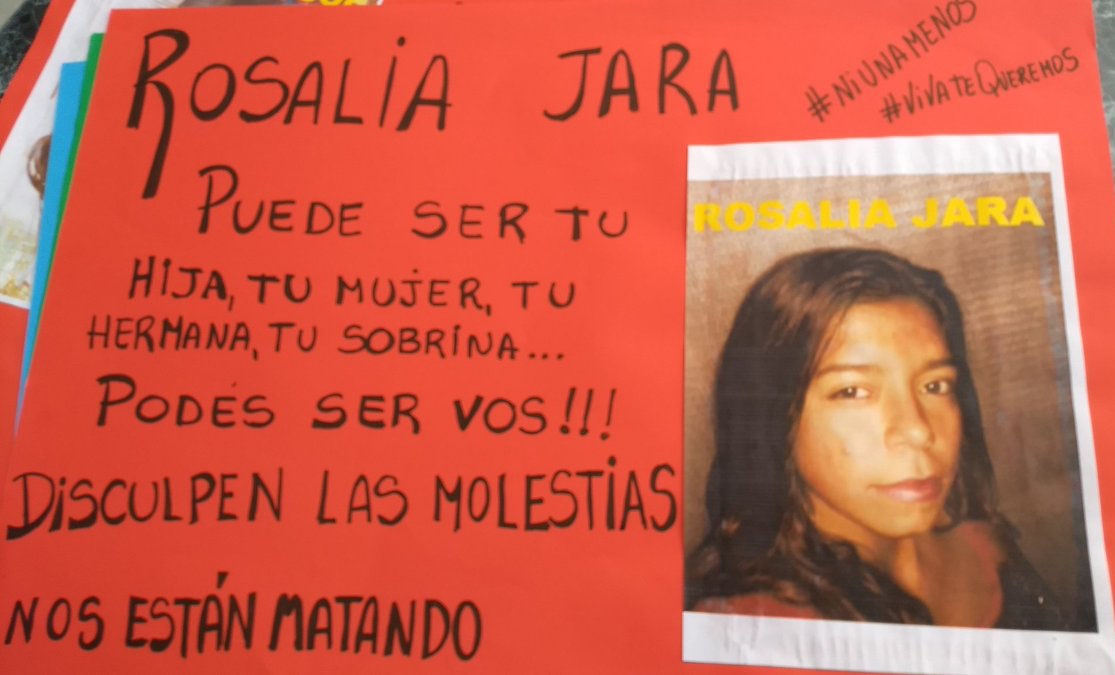 ROSALIA JARA
#NIUNAMENOS
#VIVATEQUEREMOS
PUEDE SER TU
HIJA, TU MUJER, TU
HERMANA, TU SOBRINA...
PODÉS SER VOS!!!
DISCULPEN LAS MOLESTIAS
NOS ESTÁN MATANDO
ROSALIA JARA